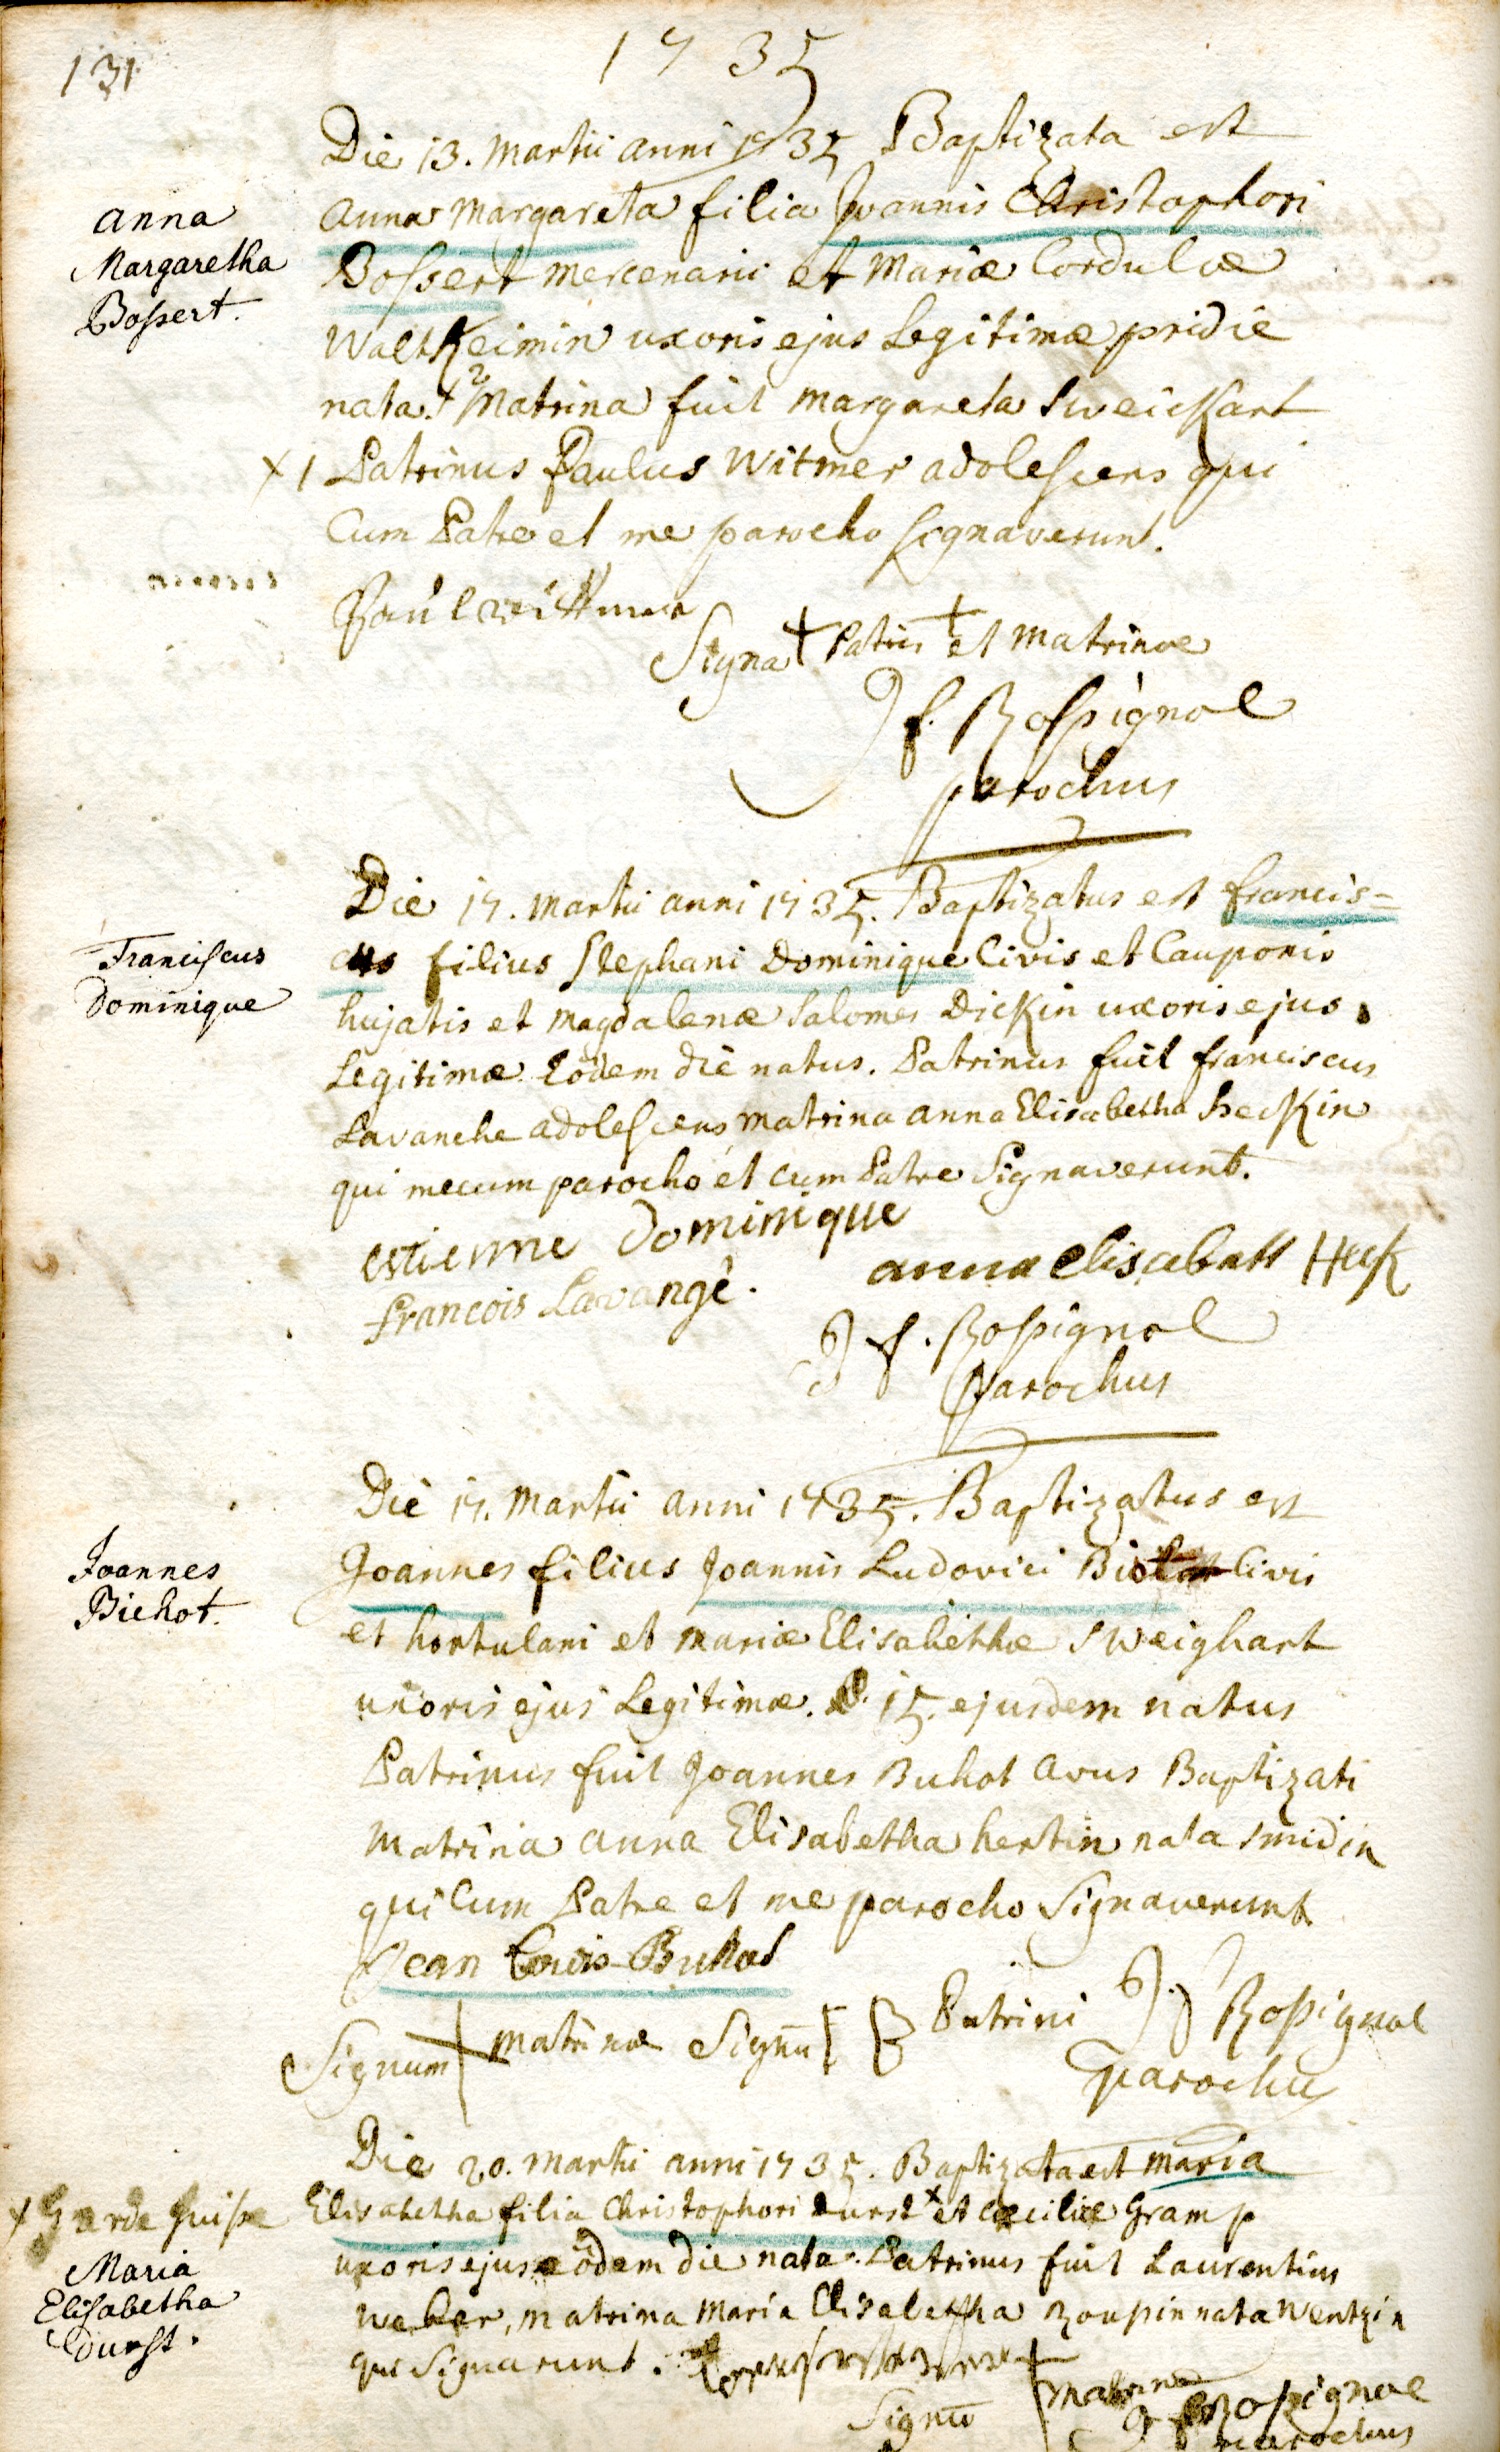 131
1735
Die 13. Martii anni 1735 Baptizata est
Anna Margareta filia Joannis Christophori
Bossert mercenarii et Mariæ Cordulæ
Waltkeimin uxoris ejus Legitimæ pridie
nata. + 2 Matrina fuit Margareta Sweickart
+ 1 Patrinus Paulus Witmer adolescens qui
Cum Patre et me parocho signaverunt.
Anna
Margaretha
Bossert.
Paul wittmer
Signa + Patris + et Matrinæ
J f. Rossignol
parochus
Die 17. Martii anni 1735. Baptizatus est francis=
cus filius Stephani Dominique Civis et Cauponis
hujatis et Magdalenæ Salomes Dickin uxoris ejus
Legitimæ Eôdem die natus. Patrinus fuit franciscus
Lavanche adolescens, matrina anna Elisabetha Heckin
qui mecum parocho et cum Patre Signaverunt.
Franciscus
Dominique
estienne Dominique
anna elisabatt Heck
francois Lavangé.
J f. Rossignol
Parochus
Die 17. Martii anni 1735. Baptizatus est
Joannes filius Joannis Ludovici Civis
et hortulani et Mariæ Elisabethæ Sweighart
uxoris ejus Legitimæ. 15. ejusdem natus
Patrinus fuit Joannes Buhot Avus Baptizati
Matrina anna Elisabetha hertin nata Smidin
qui Cum Patre et me parocho Signaverunt
Joannes
Bichot.
Jean Louis Buhot
Signum + Matrinæ Signu B Patrini J f Rossignol
parochus
Die 20. Martii anni 1735. Baptizata est Maria
Elisabetha filia Christophori Durst + et Cæciliæ Gramp
uxoris ejus eôdem die nata. Patrinus fuit Laurentius
Weber, matrina Maria Elisabetha Roupin nata Wentzin
qui Signarunt.
+ Garde Suisse
Maria
Elisabetha
Durst.
Signu + Matrinæ
J f Rossignol
parochus